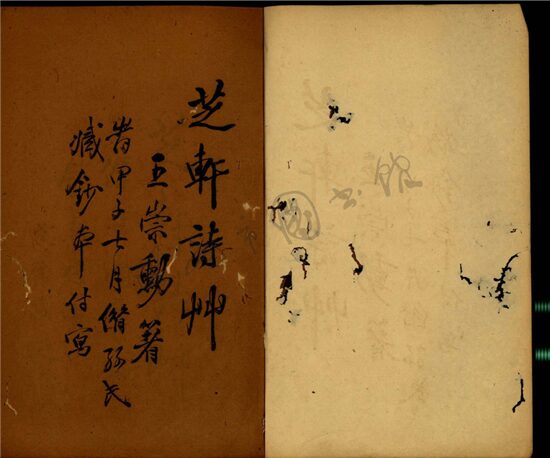 芝軒詩艸
王崇勳著
甲子七月借孫氏
臧鈔本付寫